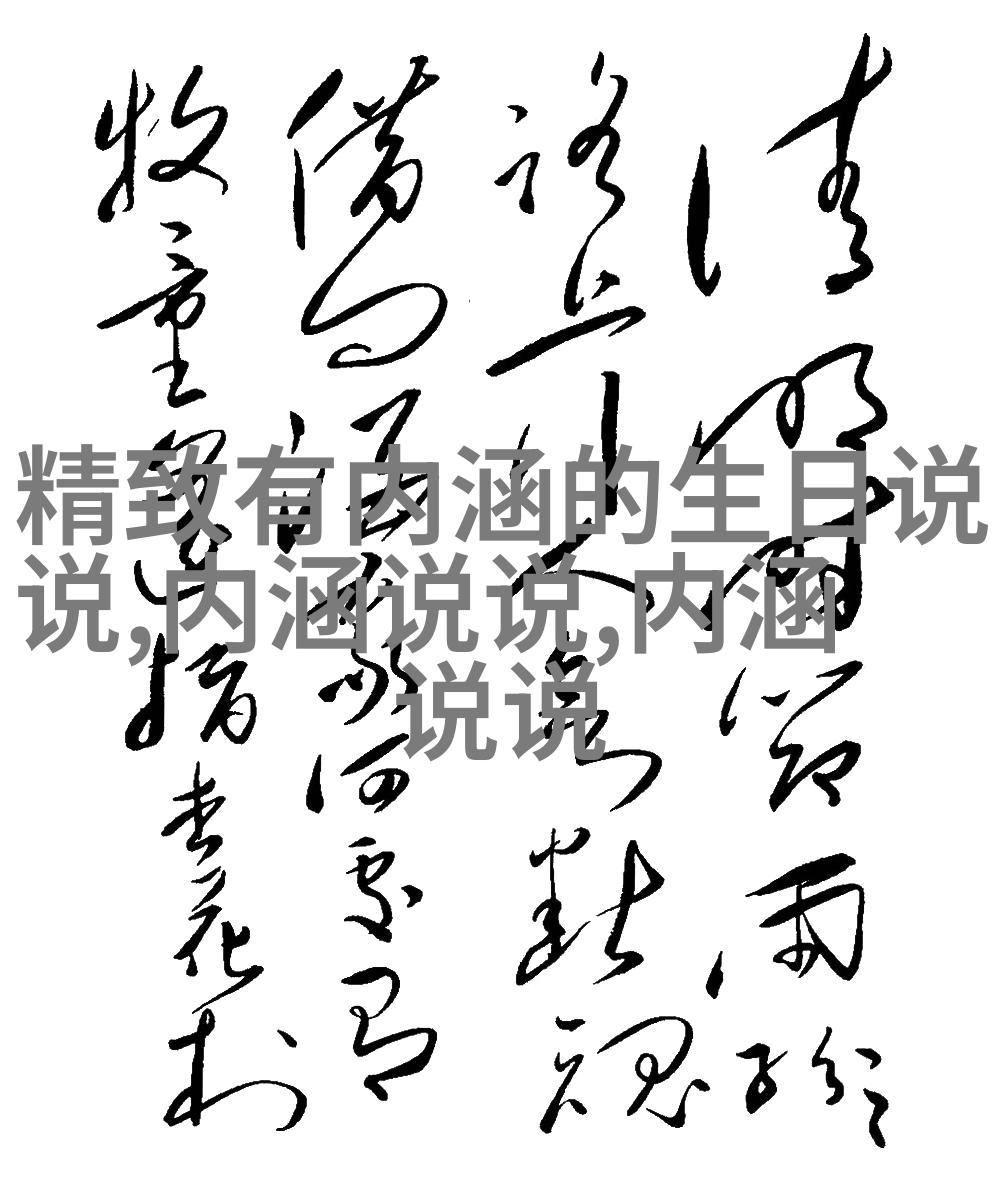 清明時節雨紛々
路上行人欲斷魂
借问酒家何處有
牧童遥指杏花村
精致有内涵的生日说
说,内涵说说,内涵
说说